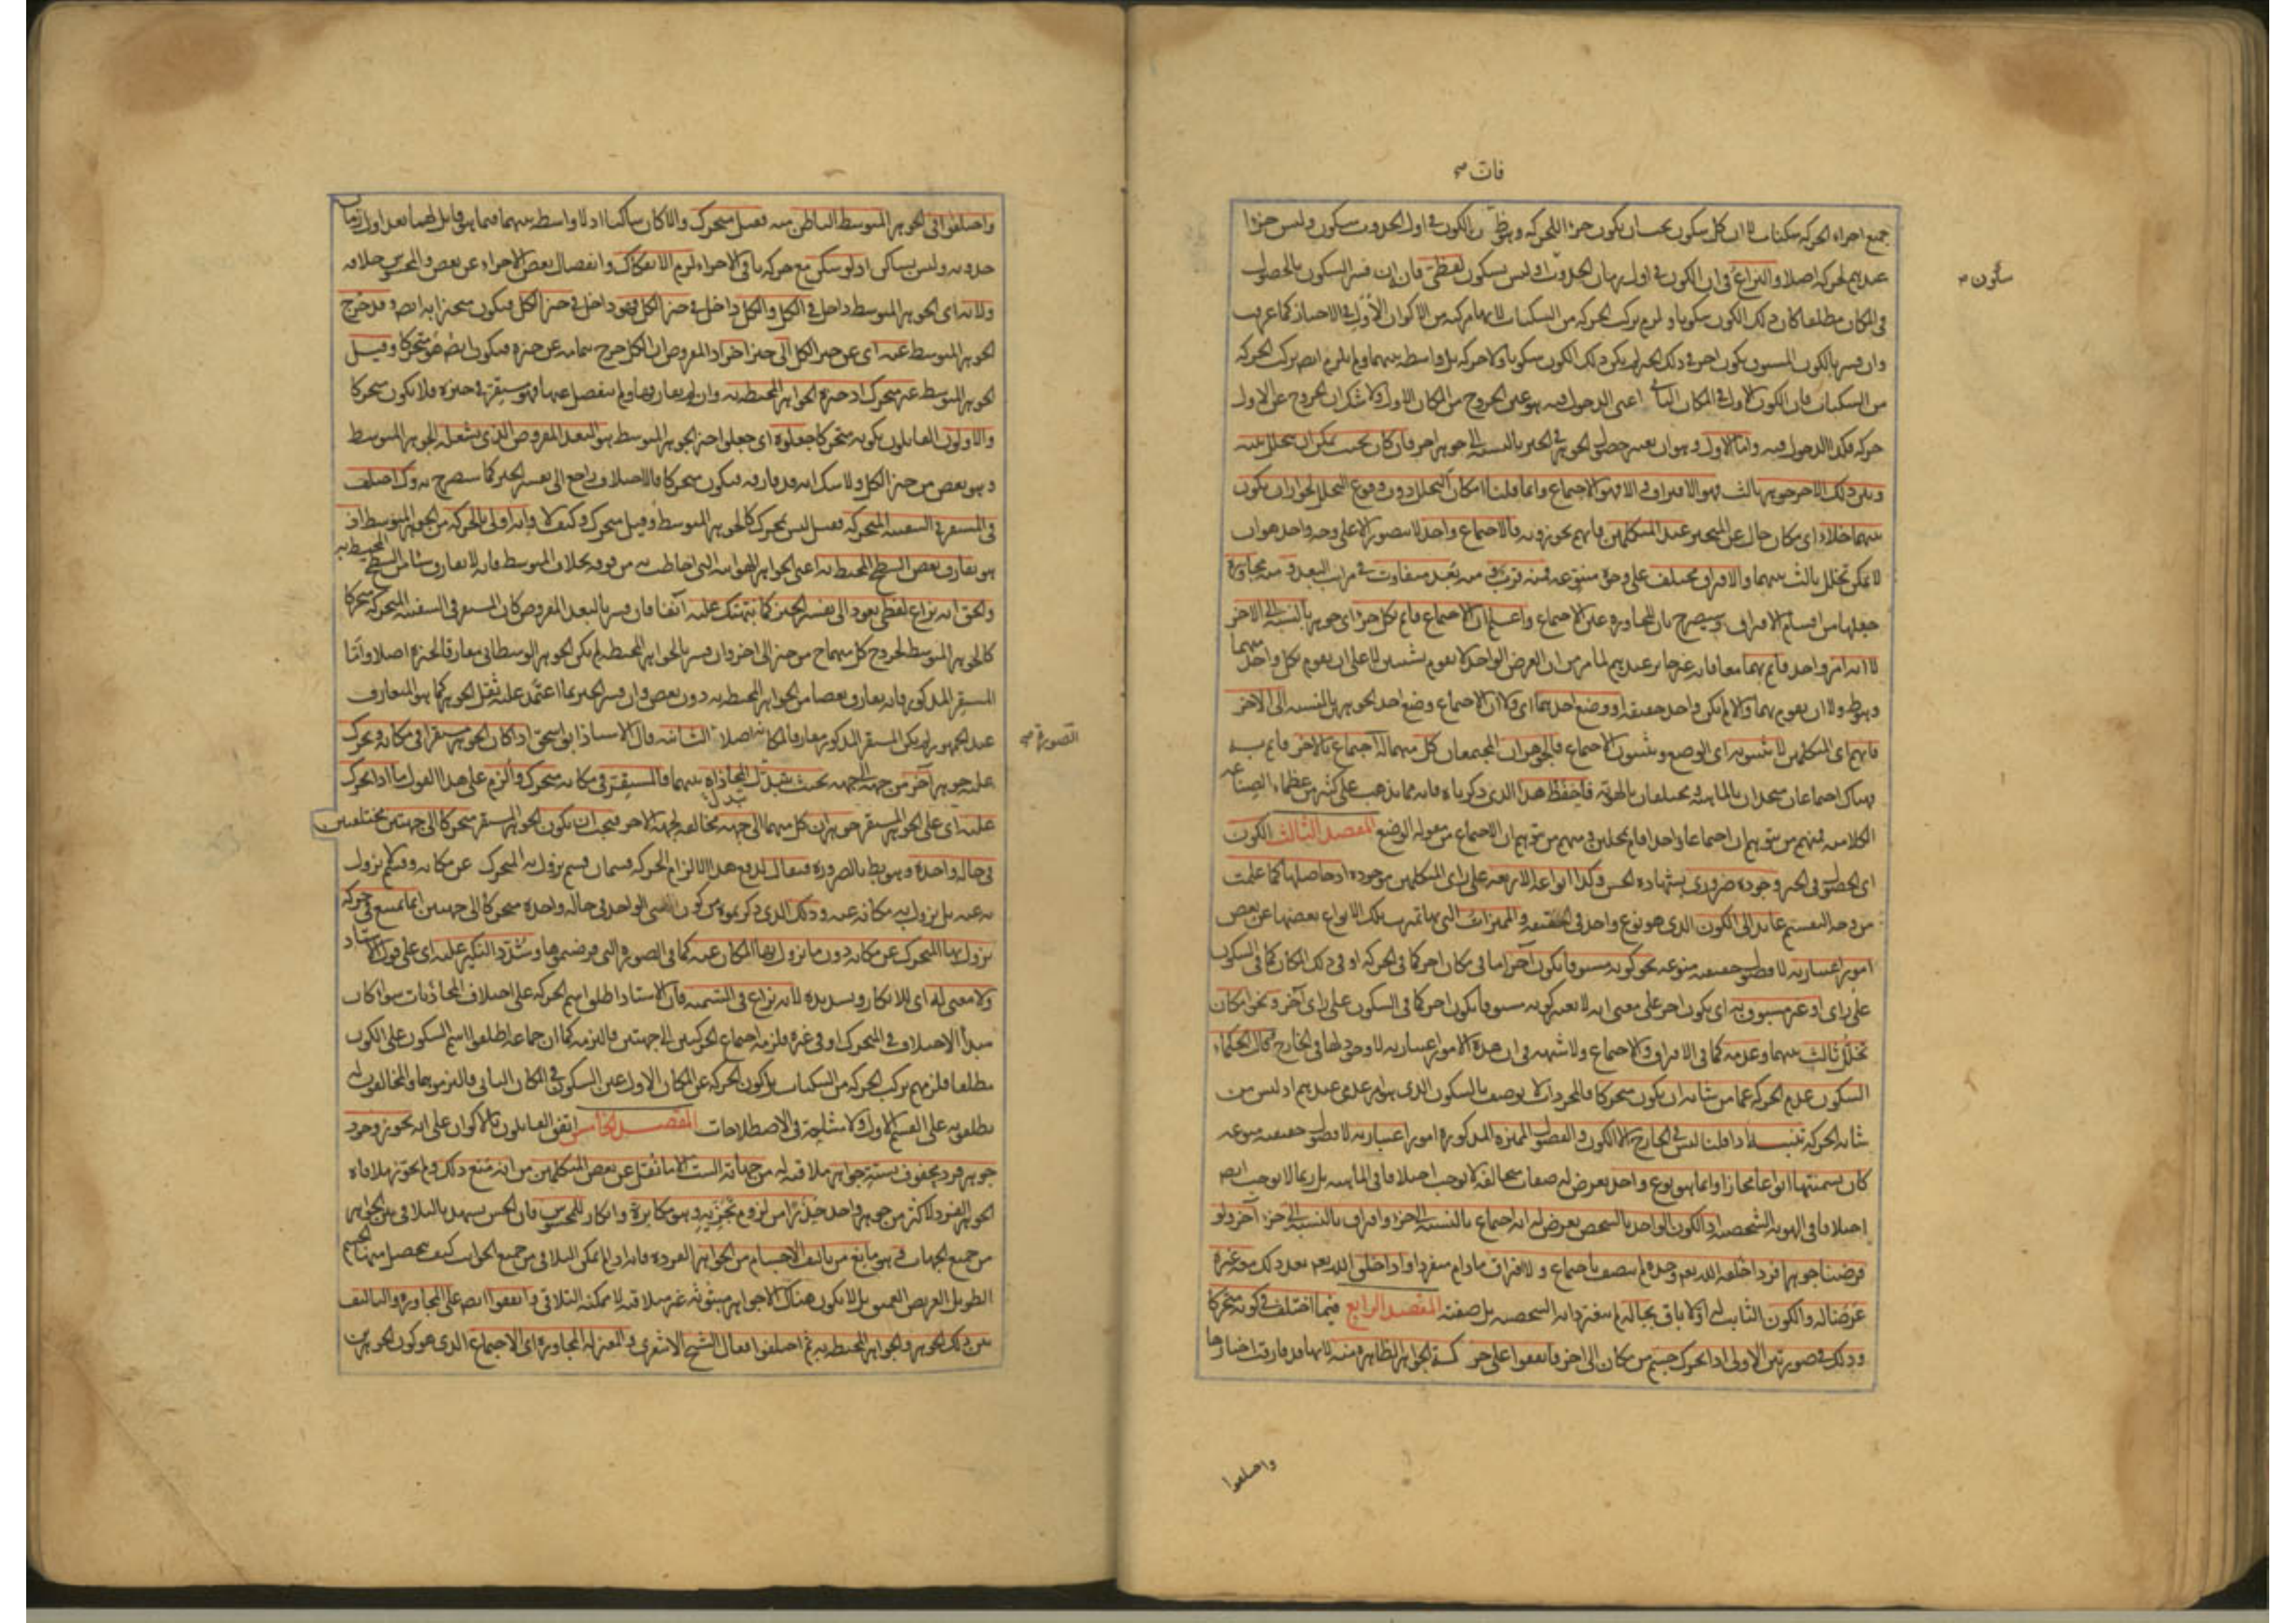 فات صح
جميع اجزاء الحركة سكنات لا ان كل سكون يجب ان يكون جزءا للحركة وهو ظ ن الكون في اول الحدوث سكون وليس جزءا
سكون صح
عندهم لحركة اصلا والنزاع في ان الكون في اول زمان الحدوث اوليس بسكون لفظي فان ان فسر السكون بالحصول
في المكان مطلقا كان ذلك الكون سكونا ولزم تركب الحركة من السكنات لانها مركبة من الاكوان الاول في الاحياز كما عرفت
وان فسر بالكون المسبوق بكون اخر في ذلك الحيز لم يكن ذلك الكون سكونا ولا حركة بل واسطة بينهما ولم يلزم ايضا تركب الحركة
من السكنات فان الكون الاول في المكان الثاني اعني الدخول فيه هو عين الخروج من المكان الاول ولا شك ان الخروج عن الاول
حركة فكذا الدخول فيه واما الاول وهو ان يعتبر حصول الجوهر في الحيز بالنسبة الى جوهر اخر فان كان بحيث يمكن ان يتخلل بينه
وبين ذلك الاخر جوهر ثالث فهو الافتراق والا فهو الاجتماع وانما قلنا امكان التخلل دون وقوع التخلل لجواز ان يكون
بينهما خلاء اي مكان خال عن المتحيز عند المتكلمين فانهم يجوزونه فالاجتماع واحد لا يتصور الا على وجه واحد هو ان
لا يمكن تخلل ثالث بينهما والافتراق مختلف على وجوه متنوعة فمنه قرب ومنه بعد متفاوت في مراتب البعد ومنه مجاورة
جعلها من اقسام الافتراق وسيصرح بان المجاورة عين الاجتماع واعلم ان الاجتماع قائم بكل جزء اي جوهر بالنسبة الى الاخر
لا انه امر واحد قائم بهما معا فانه غير جائز عندهم لما مر من ان العرض الواحد لا يقوم بشيئين لا على ان يقوم بكل واحد منهما
وهو ظ ولا ان يقوم بهما والا لم يكن واحدا حقيقة او وضع احدهما اي ولا ان الاجتماع وضع احد الجوهرين بالنسبة الى الاخر
فانهم اي المتكلمين لا يثبتونه اي الوضع ويثبتون الاجتماع فالجوهران المجتمعان كل منهما له اجتماع بالاخر قائم به
فهناك اجتماعان متحدان بالماهية ومختلفان بالهوية فاحفظ هذا الذي ذكرناه فانه مما يذهب على كثير من عظماء الصناعة
الكلامية فمنهم من يتوهم ان اجتماعا واحدا قام بمحلين ومنهم من يتوهم ان الاجتماع من مقولة الوضع المقصد الثالث الكون
اي الحصول في الحيز وجوده ضروري بشهادة الحس وكذا انواعه الاربعة على راي المتكلمين موجودة اذ حاصلها كما علمت
من وجه التقسيم عائد الى الكون الذي هو نوع واحد في الحقيقة والمميزات التي بها تميزت تلك الانواع بعضها عن بعض
امور اعتبارية لا فصول حقيقية منوعة نحو كونه مسبوقا بكون آخر اما في مكان اخر كما في الحركة او في ذلك المكان كما في السكون
على راي او غير مسبوق به اي بكون اخر على معنى انه لا يعتبر كونه مسبوقا بكون اخر كما في السكون على راي آخر ونحو امكان
تخلل ثالث بينهما وعدمه كما في الافتراق والاجتماع ولا شبهة في ان هذه الامور اعتبارية لا وجود لها في الخارج قال الحكماء
السكون عدم الحركة عما من شانه ان يكون متحركا فالمجردات لا يوصف بالسكون الذي هو امر عدمي عندهم اذ ليس من
شانه الحركة تنبيه اذا قلنا ليس في الخارج الا الكون والفصول المميزة المذكورة امور اعتبارية لا فصول حقيقية منوعة
كان تسميتها انواعا مجازا وانما هو نوع واحد يعرض له صفات متخالفة لا توجب اختلافا في الماهية بل ربما لا توجب ايضا
اختلافا في الهوية الشخصية اذ الكون الواحد بالشخص يعرض له انه اجتماع بالنسبة الى جزء وافتراق بالنسبة الى جزء آخر ولو
فرضنا جوهرا فردا خلقه الله تعم وحده لم يتصف باجتماع ولا افتراق مادام منفردا واذا خلق الله تعم بعد ذلك معه غيره
عرضا له والكون الثابت له اولا باق بحاله لم يتغير ذاته الشخصية بل صفته المقصد الرابع فيما اختلف في كونه متحركا
وذلك في صورتين الاولى اذا تحرك جسم من مكان الى اخر فاتفقوا على حركة الجواهر الظاهرة منه لانها قد فارقت احيازها
واختلفوا
واختلفوا في الجوهر المتوسط الباطن منه فقيل متحرك والا كان ساكنا اذ لا واسطة بينهما فيما هو قابل لهما بعد اول زمان
حدوثه وليس بساكن اذ لو سكن مع حركة باقي الاجزاء لزم الانفكاك وانفصال بعض الاجزاء عن بعض والمحسوس خلافه
ولانه اي الجوهر المتوسط داخل في الكل والكل داخل في حيز الكل فهو داخل في حيز الكل فيكون متحيزا به ايضا وقد خرج
الجوهر المتوسط عنه اي عن حيز الكل الى حيز اخر اذ المفروض ان الكل خرج بتمامه عن حيزه فيكون ايضا هو متحركا وقيل
الجوهر المتوسط غير متحرك اذ حيزه الجواهر المحيطة به وانه لم يفارقها ولم ينفصل عنها فهو مستقر في حيزه فلا يكون متحركا
والاولون القائلون بكونه متحركا جعلوه اي جعلوا حيز الجوهر المتوسط هو البعد المفروض الذي يشغله الجوهر المتوسط
وهو بعض من حيز الكل ولا شك انه قد فارقه فيكون متحركا فالاختلاف راجع الى تفسير الحيز كما سيصرح به وكذا اختلف
في المستقر في السفينة المتحركة فقيل ليس بمتحرك كالجوهر المتوسط وقيل متحرك وكيف لا وانه اولى بالحركة من الجوهر المتوسط اذ
هو يفارق بعض السطح المحيط به اعني الجواهر الهوائية التي احاطت به من فوقه بخلاف المتوسط فانه لا يفارق شيئا من السطح المحيط به
والحق انه نزاع لفظي يعود الى تفسير الحيز كما نبهتك عليه آنفا فان فسر بالبعد المفروض كان المستقر في السفينة المتحركة متحركا
كالجوهر المتوسط لخروج كل منهما ح من حيز الى اخر وان فسر بالجواهر المحيطة لم يكن الجوهر الوسطاني مفارقا لحيزه اصلا واما
المستقر المذكور فانه يفارق بعضا من الجواهر المحيطة به دون بعض وان فسر الحيز بما اعتمد عليه ثقل الجوهر كما هو المتعارف
الصورة صح
عند الجمهور لم يكن المستقر المذكور مفارقا لمكانه اصلا الثانية قال الاستاذ ابو اسحق اذا كان الجوهر مستقرا في مكانه وتحرك
عليه جوهر آخر من جهة الى جهة بحيث تبدل المحاذاة بينهما فالمستقر في مكانه متحرك والزم على هذا القول ما اذا تحرك
عليه اي على الجوهر المستقر جوهران كل منهما الى جهة مخالفة لجهة الاخر فيجب ان يكون الجوهر المستقر متحركا الى جهتين مختلفتين
في حالة واحدة وهو بط بالضرورة فيقال لدفع هذا الالزام الحركة قسمان قسم يزول به المتحرك عن مكانه وقسم لا يزول
به عنه بل يزول به مكانه عنه وذلك الذي ذكرتموه من كون الشي الواحد في حالة واحدة متحركا الى جهتين انما يمتنع في حركة
يزول بها المتحرك عن مكانه دون ما يزول بها المكان عنه كما في الصورة التي فرضتموها وشدد النكير عليه اي على قول الاستاد
ولا معنى له اي للانكار وتشديده لانه نزاع في التسمية فان الاستاد اطلق اسم الحركة على اختلاف المحاذيات سواء كان
مبدأ الاختلاف في المتحرك او في غيره فلزمه اجتماع الحركتين الى جهتين فالتزمه كما ان جماعة اطلقوا اسم السكون على الكون
مطلقا فلزمهم تركب الحركة من السكنات بل كون الحركة عن المكان الاول عين السكون في المكان الثاني فالتزموهما والمخالفون له
يطلقونه على القسم الاول ولا مشاحة في الاصطلاحات المقصد الخامس اتفق القائلون بالاكوان على انه يجوز وجود
جوهر فرد محفوف بستة جواهر ملاقية له من جهاته الست الا ما نقل عن بعض المتكلمين من انه منع ذلك ولم يجوز ملاقاة
الجوهر الفرد لاكثر من جوهر واحد حذرا من لزوم تجزيه وهو مكابرة وانكار للمحسوس فان الحس يشهد بالتلاقي بين الجواهر
من جميع الجهات وهو مانع من تاليف الاجسام من الجواهر الفردة فانه اذا لم يمكن التلاقي من جميع الجوانب كيف يتحصل منها الجسم
الطويل العريض العميق بل لا يكون هناك الا جواهر مبثوثة غير متلاقية لا يمكنه التلاقي واتفقوا ايضا على المجاورة والتاليف
بين ذلك الجوهر والجواهر المحيطة به ثم اختلفوا فقال الشيخ الاشعري والمعتزلة المجاورة اي الاجتماع الذي هو كون الجوهرين